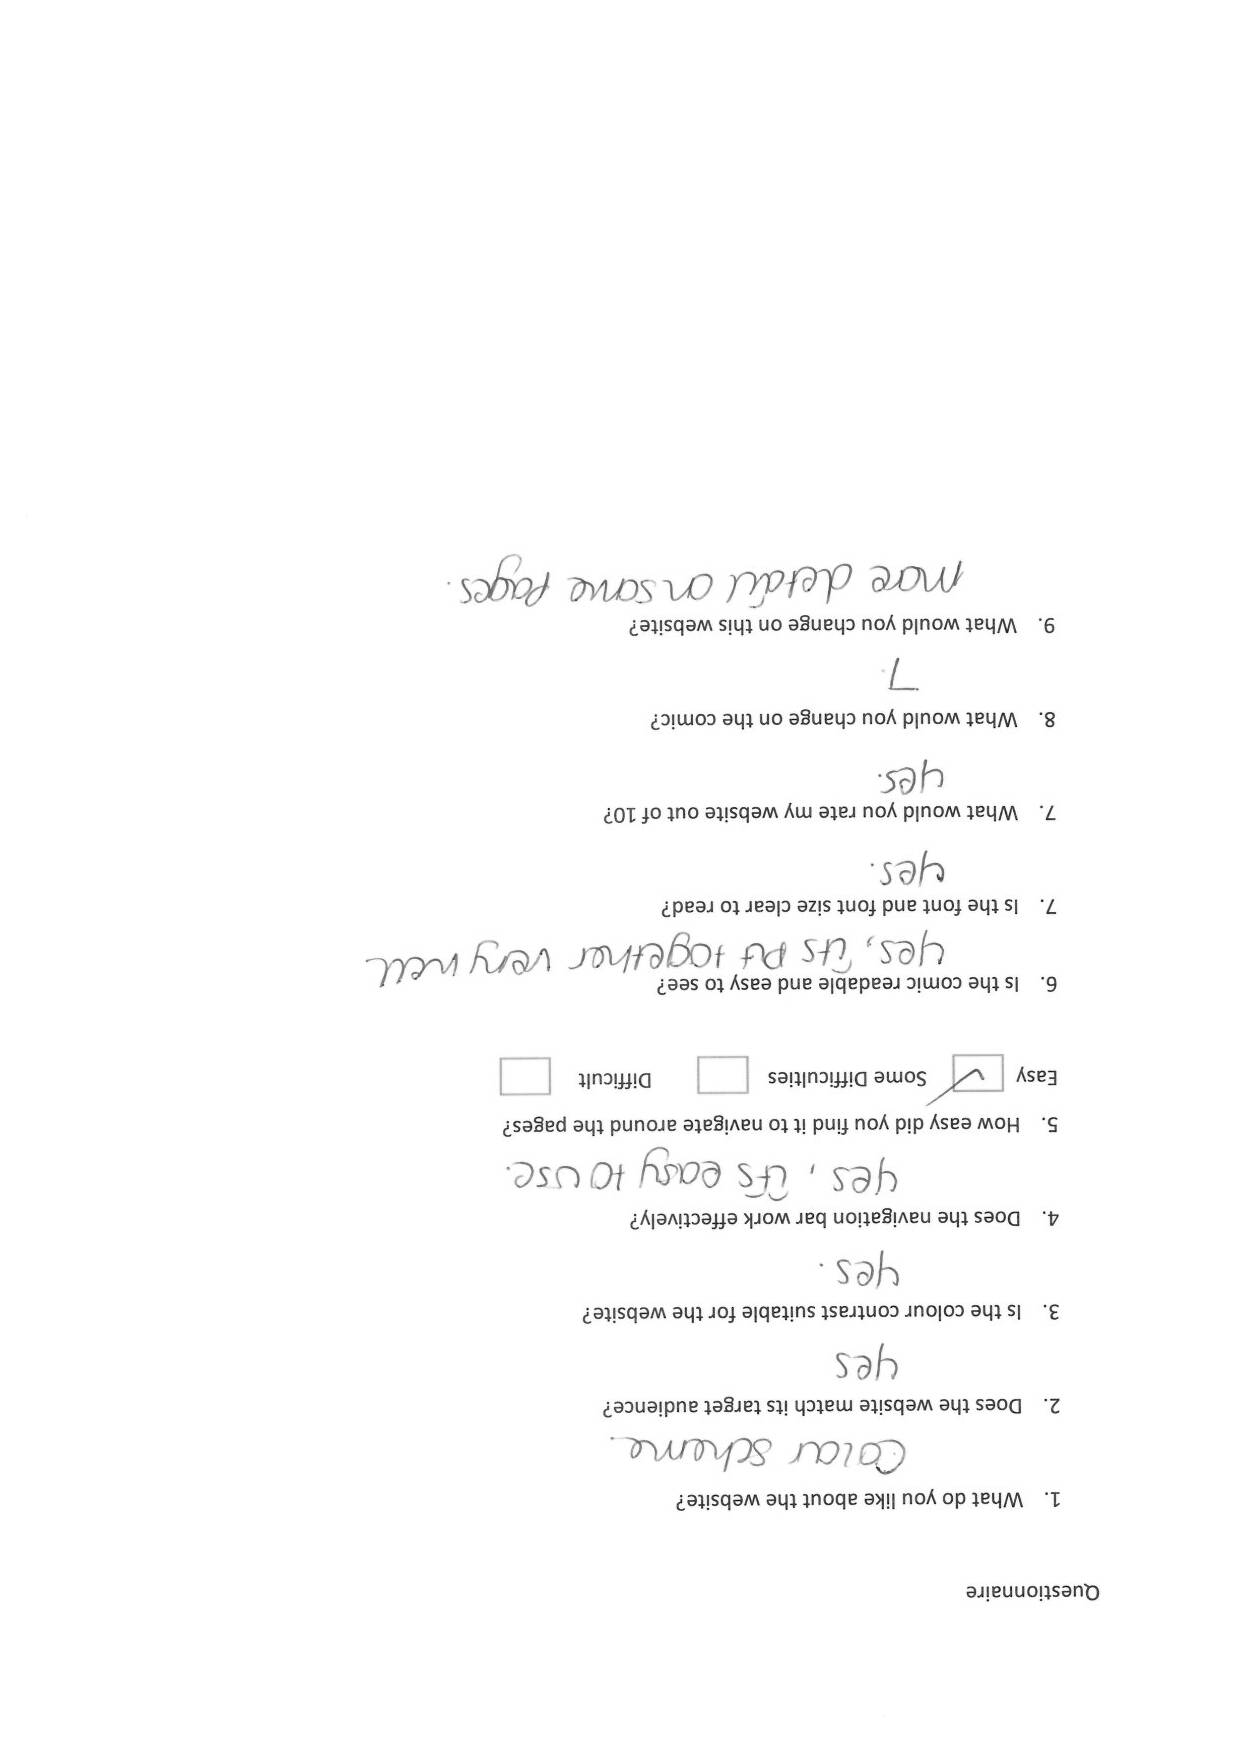 Questionnaire
1. What do you like about the website?
Colour scheme.
2. Does the website match its target audience?
yes
3. Is the colour contrast suitable for the website?
yes.
4. Does the navigation bar work effectively?
yes, its easy to use.
5. How easy did you find it to navigate around the pages?
Easy Some Difficulties Difficult
6. Is the comic readable and easy to see?
yes, its put together very well
7. Is the font and font size clear to read?
yes.
7. What would you rate my website out of 10?
yes.
8. What would you change on the comic?
7.
9. What would you change on this website?
more detail on some pages.